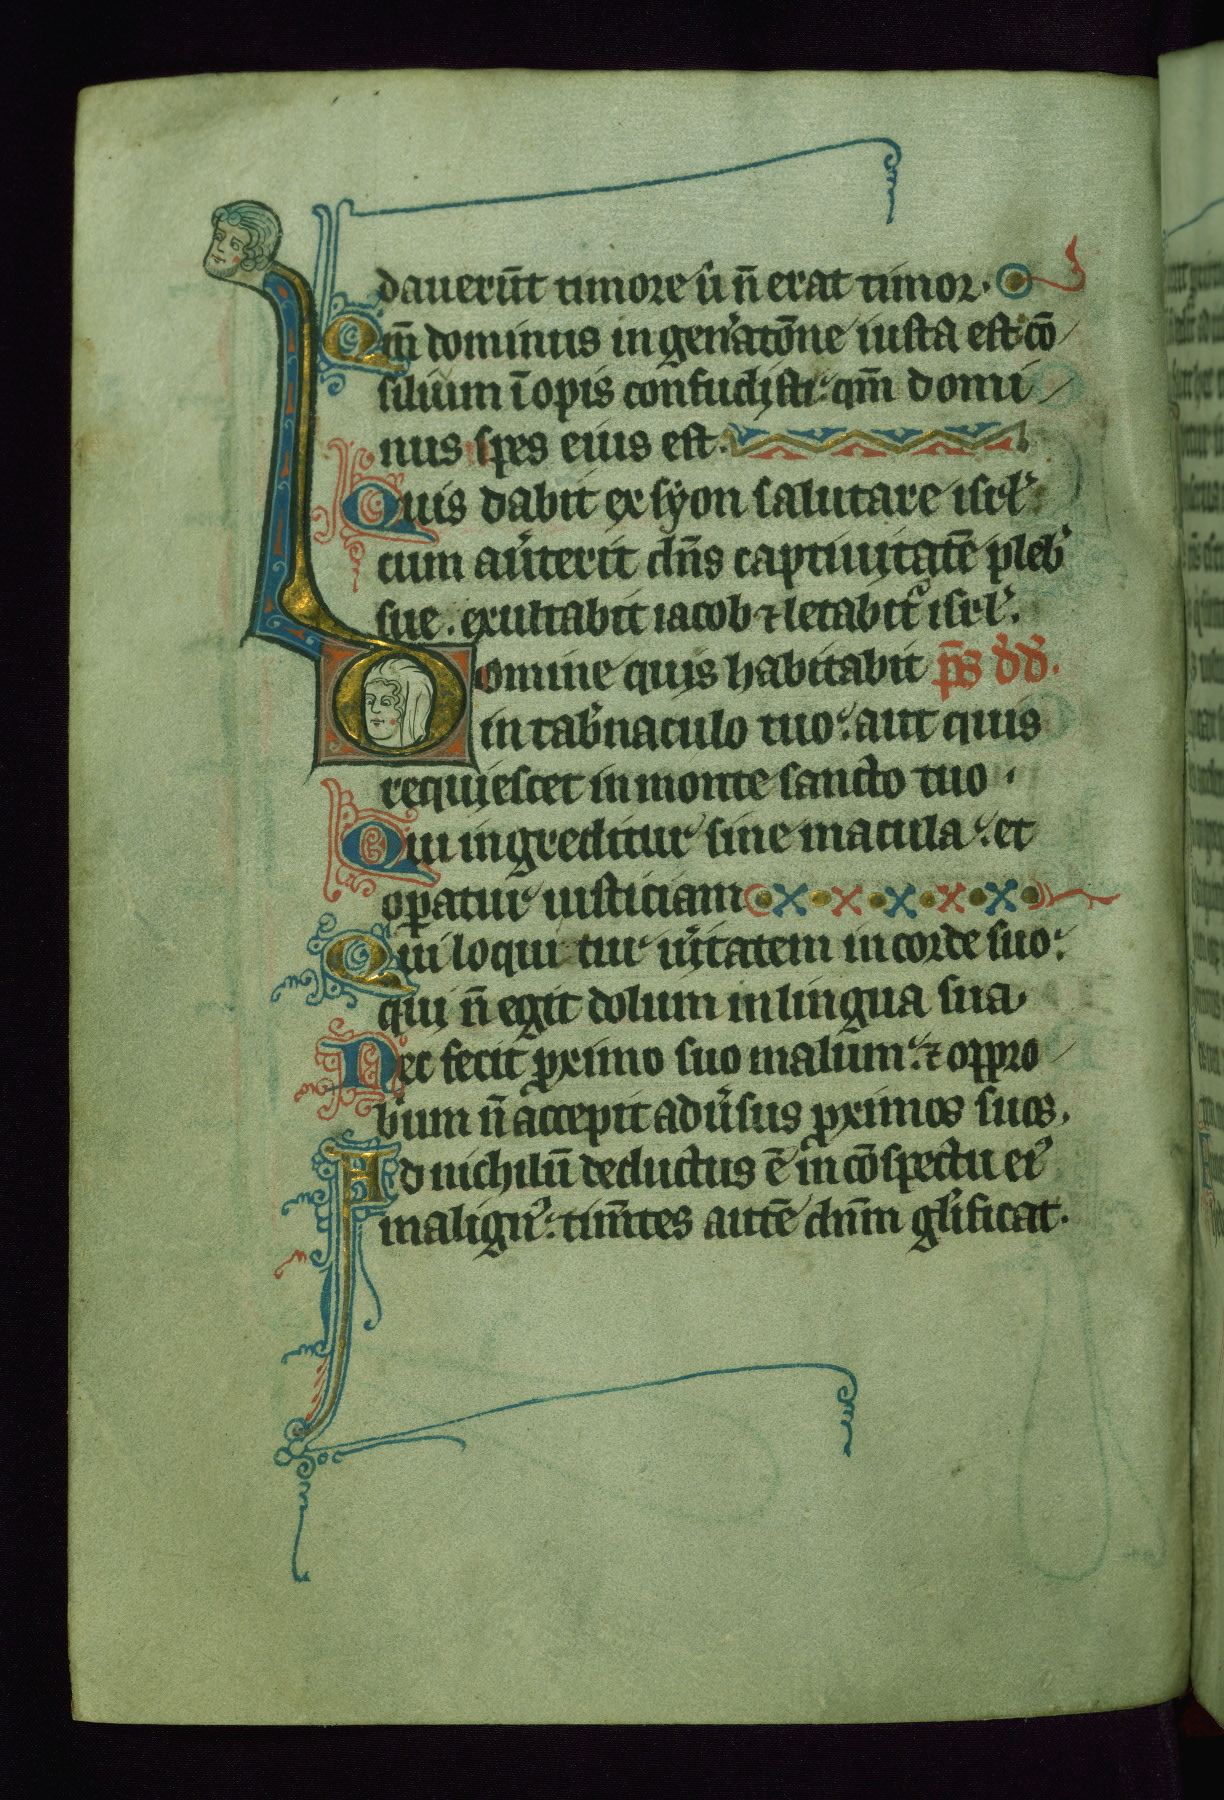 dauerūt timore ū n̄ erat timor.
Qm̄ dominus in gen'atōne iusta est cō
silium īopis confudisti: qm̄ domi
nus spes eius est.
Quis dabit ex syon salutare isrl'
cum au'terit dn̄s captiuitatē pleb'
sue. exultabit iacob ⁊ letabit' isrl'.
Domine quis habitabit p̄s d'd'.
in tab'naculo tuo: aut quis
requiescet in monte sancto tuo.
Qui ingreditur sine macula: et
op̱atur iusticiam
Qui loqui tur u'itatem in corde suo:
qui n̄ egit dolum in lingua sua.
Nec fecit ꝓximo suo malum: ⁊ oppro
b'ium n̄ accepit adu'sus ꝓximos suos.
Ad nichilū deductus ē in cōspectu ei'
malign': tim̄tes autē dn̄m gl'ificat.